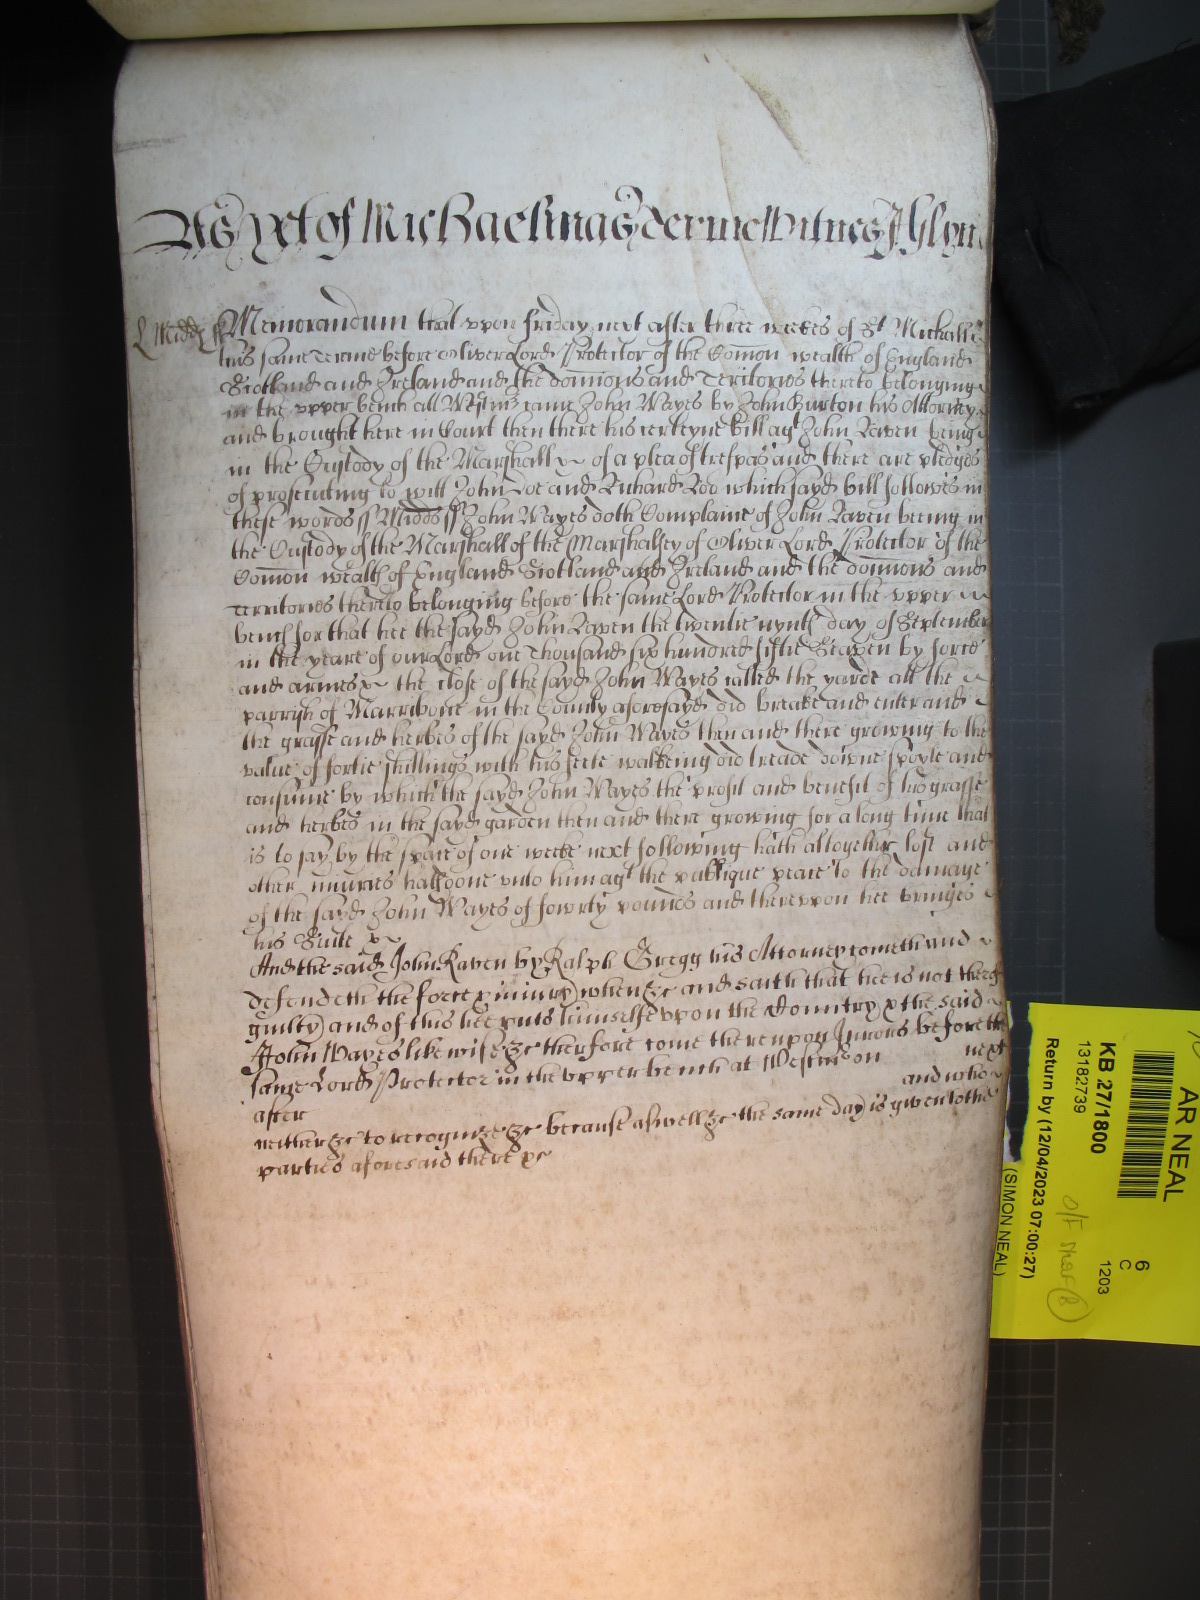 As yet of Michaelmas Terme Witnes J Glyn
Midds ss Memorandum that vpon friday next after three weekes of St Michaell
this same Terme before Oliver Lord Protector of the Comon wealth of England
Scotland and Ireland and the dominions and Territories thereto belonging
in the vpper bench att Westmr came John Mayes by John Burton his Attorney
and brought here in Court then there his certeyne bill agt John Raven being
in the Custody of the Marshall of a plea of trespas and there are pledges
of prosecuting to witt John Doe and Richard Roo which sayd bill followes in
these words ss Midds ss John Mayes doth Complaine of John Raven beeing in
the Custody of the Marshall of the Marshalsey of Oliver Lord Protector of the
Comon wealth of England Scotland and Ireland and the dominions and
Territories thereto belonging before the same Lord Protector in the vpper
bench for that hee the sayd John Raven the twentie nynth day of September
in the yeare of our Lord one Thousand six hundred fiftie Seaven by force
and armes &c the close of the sayd John Mayes called the yarde att the
parrish of Marribone in the County aforesayd did breake and enter and
the grasse and herbes of the sayd John Mayes then and there growing to the
value of fortie shillings with his feete walkeing did treade downe spoyle and
consume by which the sayd John Mayes the profit and benefit of his grasse
and herbes in the sayd garden then and there growing for a long time that
is to say by the space of one weeke next following hath altogether lost and
other iniuries hath done vnto him agt the publique peace to the damage
of the sayd John Mayes of fowrty pounds and therevpon hee bringes
his Suite &c
And the said John Raven by Ralph Gregg his Attorney cometh and
defendeth the force & iniury when &c and saith that hee is not thereof
guilty and of this hee puts himselfe vpon the Country & the said
John Mayes likewise &c therfore lett come therevpon Jurors before the
same Lord Protector in the vpper bench at Westmr on next
after and who
neither &c to recognize &c because aswell &c the same day is given to the
parties aforesaid there &c
AR NEAL
KB 27/1800
13182739
Return by (12/04/2023 07:00:27)
(SIMON NEAL)
6
C
1203